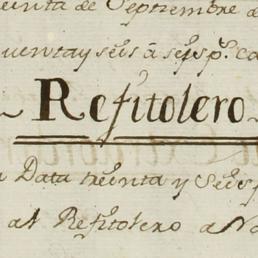 de Septembre de
quenta y seis â seys p.^s ca
Refitolero
Data treinta y seis
al Refitolero a No